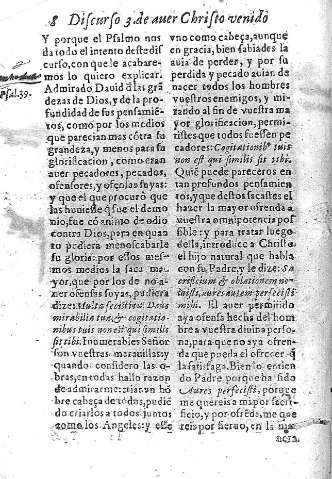 8 Discurso 3 de auer Christo venido
Psal.39.
Y porque el Psalmo nos
da todo el intento deste dis
curso, con que le acabare-
mos lo quiero explicar.
Admirado Dauid d̃ las grã
dezas de Dios, y de la pro-
fundidad de sus pensamiẽ-
tos, como por los medios
que parecian mas cõtra su
grandeza, y menos para su
glorificacion, como eran
auer pecadores, pecados,
ofensores, y ofensas suyas:
y que el que procuro que
las huuiesse q̃ fue el demo
nio, fue cõ animo de odio
contra Dios, para en quan
to pudiera menoscabarle
su gloria: por essos mes-
mos medios la saca ma-
yor, que por los de no a-
uer ofensas suyas, pudiera
dize: Multa fecisti tu Deus
mirabilia tua, & cogitatio
nibus tuis non est qui similis
sit tibi. Inumerables Señor
son vuestras marauillas: y
quando considero las o-
bras, en todas hallo razon
de admirarme: criar vn hõ
bre cabeça de todos, pudiẽ
do criarlos a todos juntos
como los Angeles: y esse
vno como cabeça, aunque
en gracia, bien sabiades la
auia de perder, y por su
perdida y pecado auian de
nacer todos los hombres
vuestros enemigos, y mi-
rando al fin de vuestra ma
yor glorificacion, permi-
tistes que todos fuessen pe-
cadores: Cogitationib⁹ tuis
non est qui similis sit tibi.
Quiẽ puede pareceros en
tan profundos pensamien
tos, y que destos sacastes el
hauer la mayor ofrenda a
vuestra omnipotencia pos
sible: y para tratar luego
della, introduce a Christo
el hijo natural que habla
con su Padre, y le dize: Sa
crificium & oblationem no
luisti, aures autem perfecisti
mihi. El auer permitido
aya ofensa hecha del hom
bre a vuestra diuina perso
na, para que no aya ofren-
da que pueda el ofrecer q̃
la satisfaga. Bien lo enten
do Padre, porque ha sido
Aures perfecisti, porque
me querereis a mi por sacri
ficio, y por ofrẽda, me que
reis por sieruo, en la ma
nera